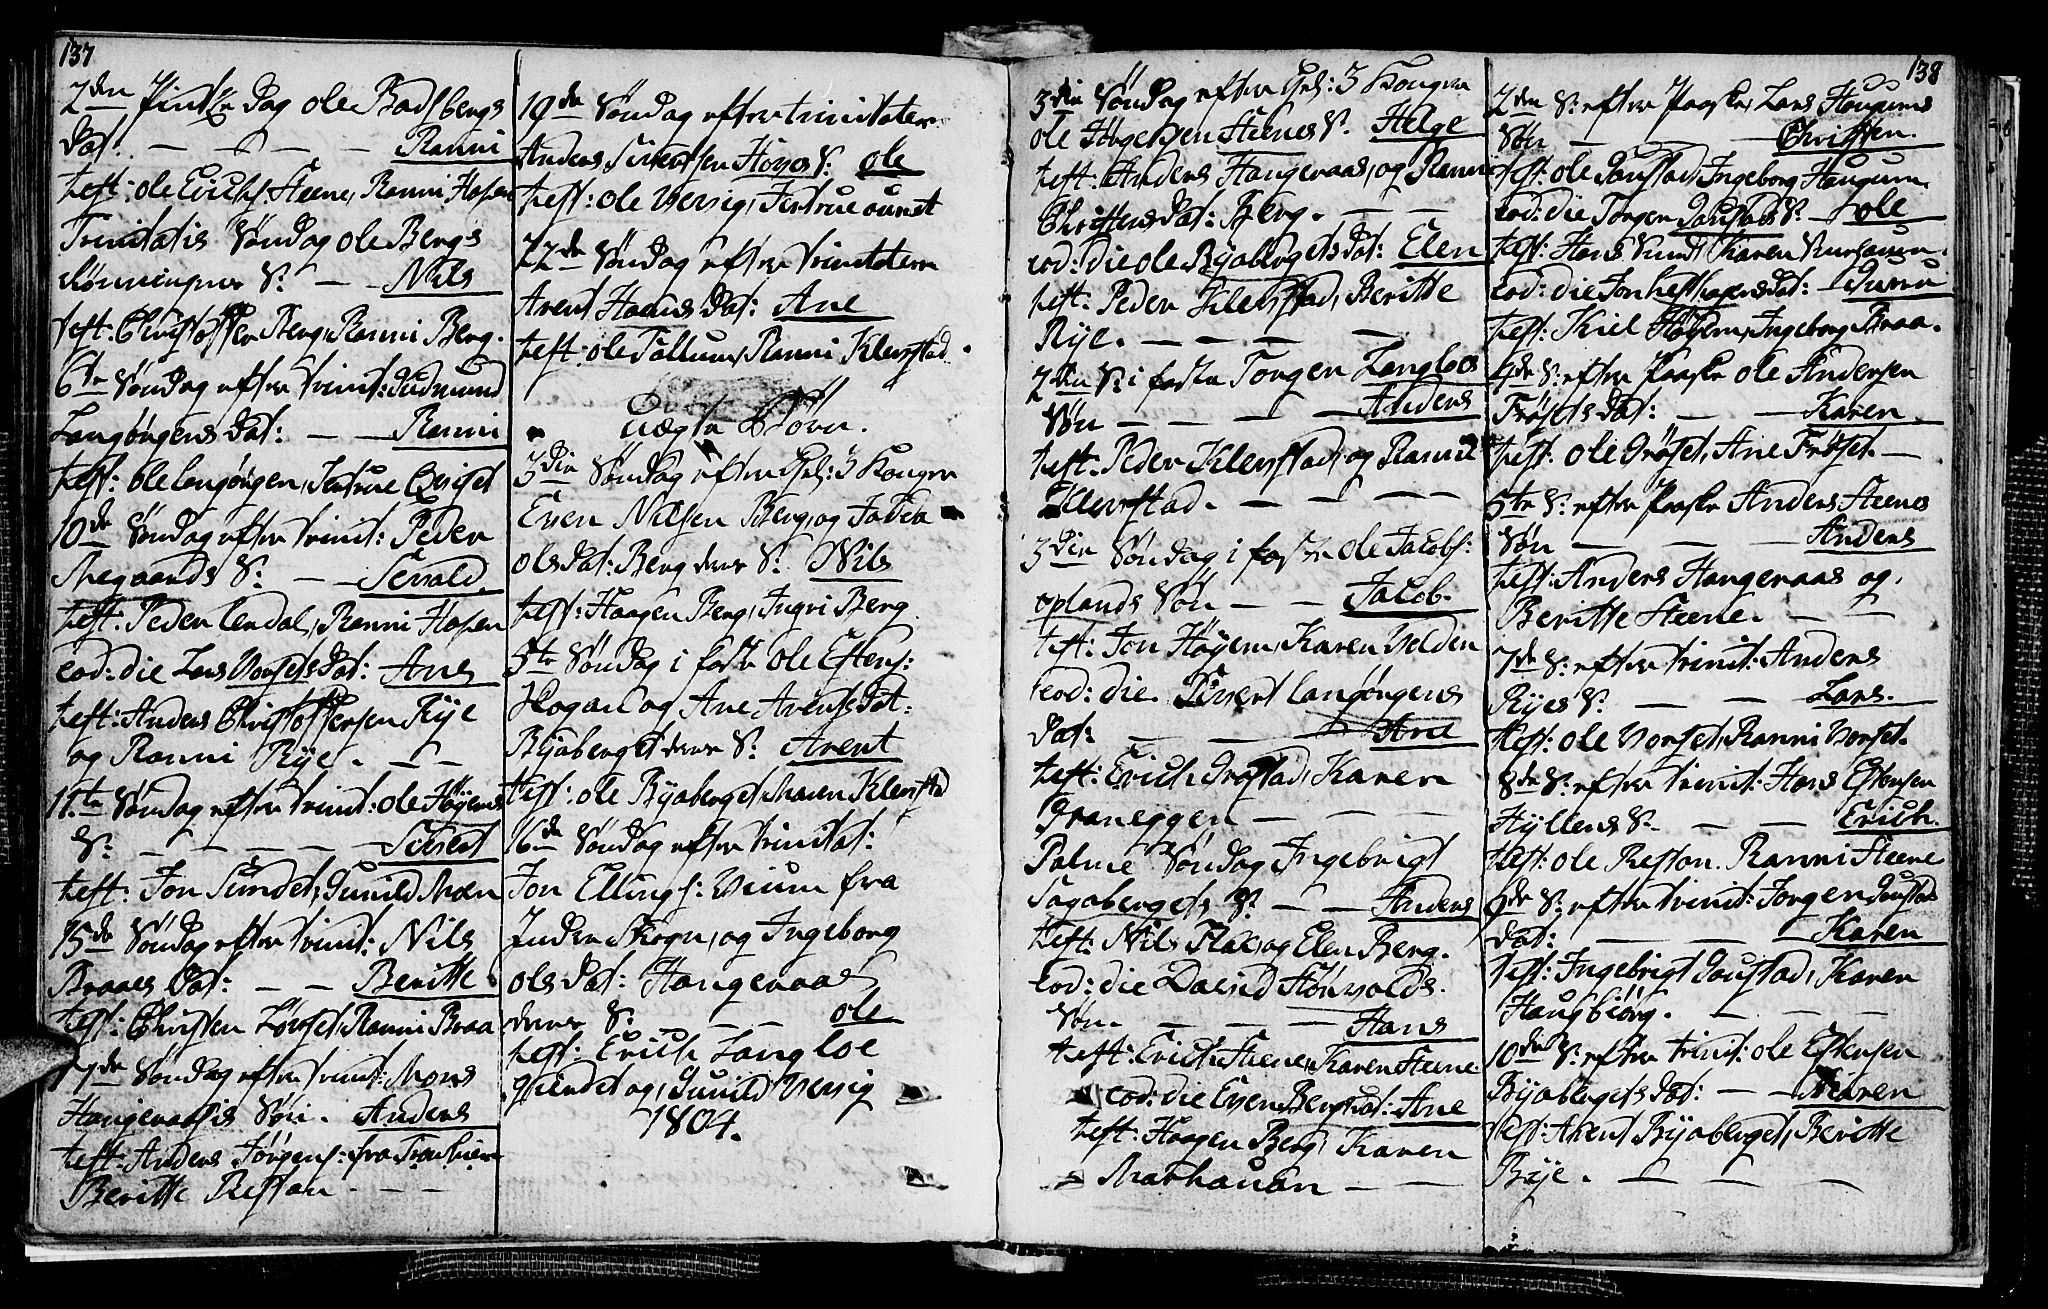 137
2den Pintse Dag ole Badsbergs
Dat. — — — — Ranni
test: ole Erichs: Steene, Ranni Hosen
Trinitatis Søndag ole Bergs
Rønningens S: — — Nils
test: Christoffer Berg, Ranni Berg.
6te Søndag efter trinit: Gudmund
Langørgens Dat: — — Ranni
test: ole langørgen,
10de Søndag efter trinit: Peder
Megaards S: — — Sivald
test: Peder lendal, Ranni Hosen
eod: die Lars Vorsets Dat: Ane
test: Anders Christoffersen Rye
og Ranni Rye. — —
11te Søndag efter trinit: ole Høyems
S: — — — — Sivert
test: Jon Sundet, Gunild Moen
15de Søndag efter trinit: Nils
Braaes Dat: — — Beritte
test: Christen Lørset, Ranni Braa
17de Søndag efter trinit: Mons
Haugeraasis Søn. Anders
test: Anders Jørgens: fra Tronhiem
Beritte Restan. — —
19de Søndag efter trinitatem
Anders Sivertsen Hoves S: ole
test: ole Versig,
22de Søndag efter trinitatem
Arent Dat: Ane
test: ole Tøllum, Ranni Klevstad.
Uægte Børn.
3die Søndag efter Hel: 3 Konger
Even Nilsen Berg, og
olsdat: Berg deres S: Nils
test: Haagen Berg, Ingri Berg
5te Søndag i faste ole Estens:
og Ane Arentsdat:
Byaberget deres S: Arent
test: ole Byaberget, Maren Klevstad
16de Søndag efter trinitat:
Jon Ellings: Vium fra
Inder Skogn, og Ingeborg
olsdat: Haugeraas
deres S: — — ole
test: Erich Langloe
qvindet og, Gunild Versig
1804.
138
3die Søndag efter Hel: 3 Konger
ole Jørgensen Steenes S. Helge
test: Anders Haugeraas, og Ranni
Christensdat: Berg. — —
eod: die ole Byabergets Dat: Elen
test: Peder Klevstad, Beritte
Rye. — — — —
2den S: i faste Torgen Langloes
Søn — — — Anders
test: Peder Klevstad, og Ranni
Klevstad. — — — —
3die Søndag i faste ole Jacobs:
oplands Søn — — Jacob.
test: Jon Høyem, Karen Velden
eod: die. Sivert langørgens
Dat: — — Ane
test: Erich Karen
Graneggen — — —
Palme Søndag Ingebrigt
Sagabergets S: — — Anders
test: Nils Flak, og Elen Berg.
eod: die David Stønvolds
Søn. — — — Hans
test: Erich Steene, Karen Steene
eod: die Even Bergs Dat: Ane
test: Haagen Berg, Karen
— —
2den S: efter Paaske, Lars Haugums
Søn — — Christen.
test: ole Gaustad, Ingeborg Haugum.
eod: die Torgen Gaustads S: — ole
test: Hans Sundt, Karen
eod: die Jon Dat: Guru
test: Kiel Høyem, Ingeborg Braa.
4de S: efter Paaske ole Andersen
Frøsets Dat: — — Karen
test: ole Ane Frøset. —
5te S: efter Paaske Anders Steenes
Søn — — — Anders
test: Anders Haugeraas og
Beritte Steene. — —
7de S: efter trinit: Anders
Ryes S: — — Lars.
test: ole Vorset, Ranni Vorset.
8de S: efter trinit: Hans Estensen
Hyllens S: — — Erich.
test: ole Restan. Ranni Steene
9de S: efter trinit: Jørgen Gaustads
Dat: — — — Karen
test: Ingebrigt Gaustad, Karen
Haugbiørg. — — —
10de S: efter trinit: ole Estensen
Byabergets Dat: — — Maren
test: Arent Byaberget, Beritte
Rye. — — —